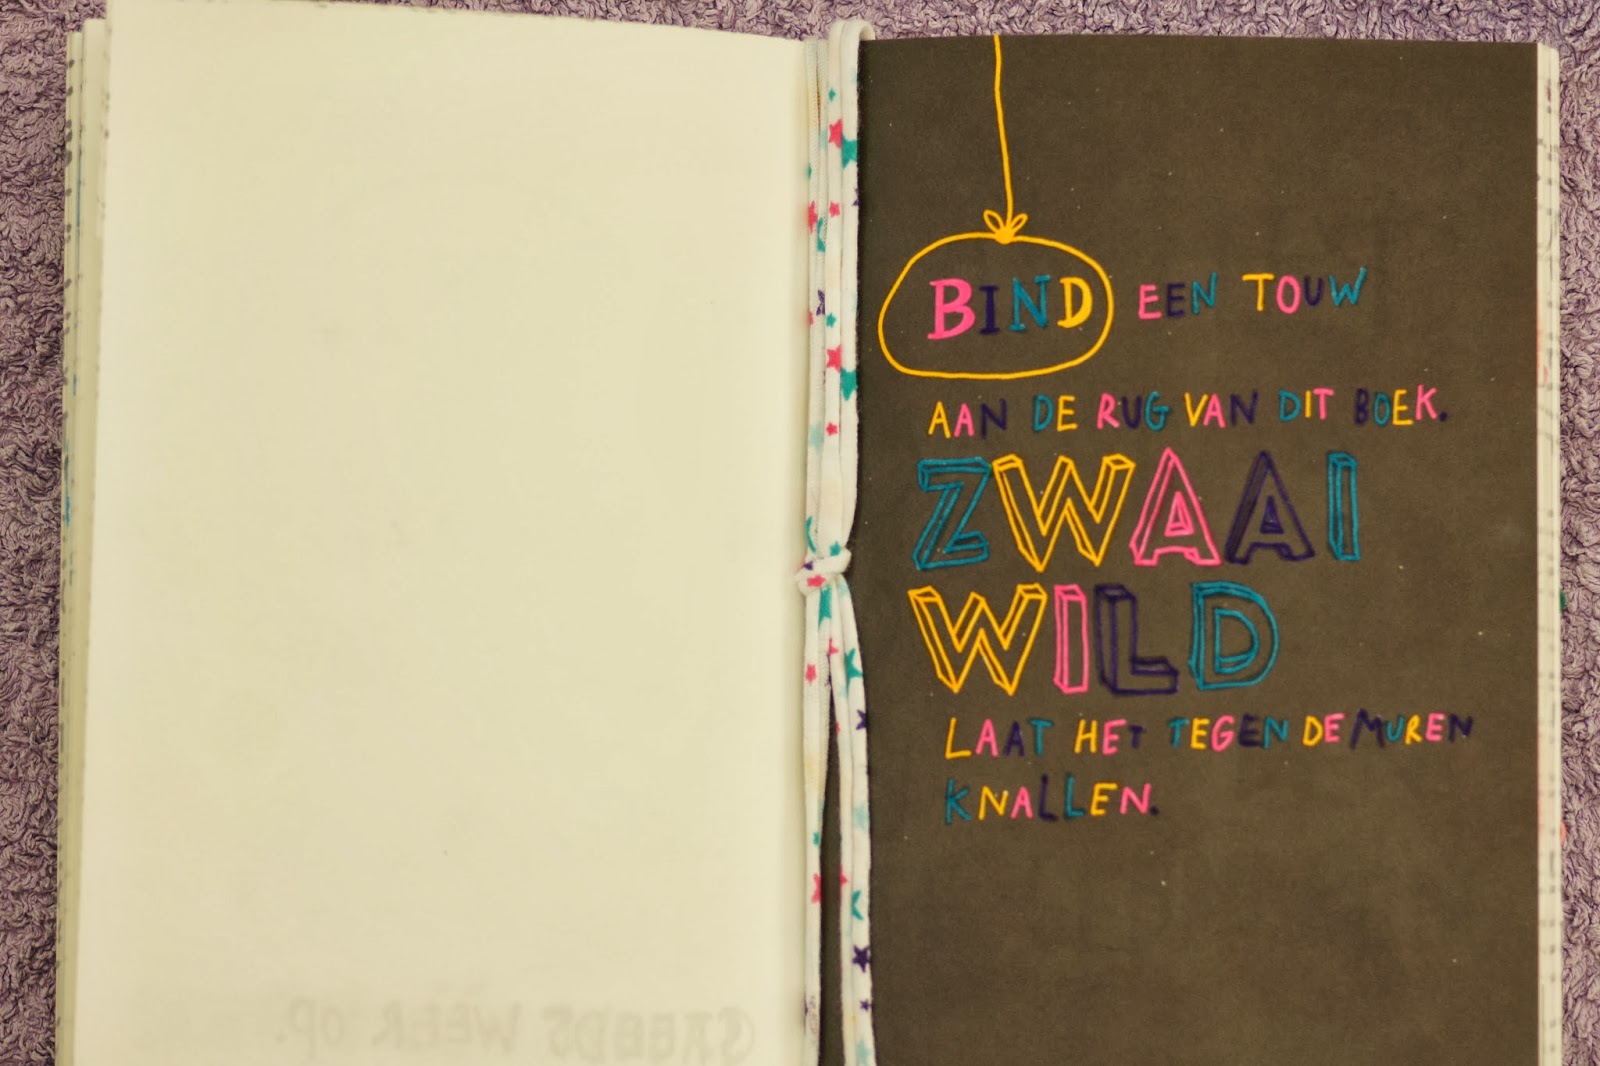 BIND EEN TOUW
AAN DE RUG VAN DIT BOEK.
ZWAAI
WILD
LAAT HET TEGEN DE MUREN
KNALLEN.
STEEDS WEER OP.